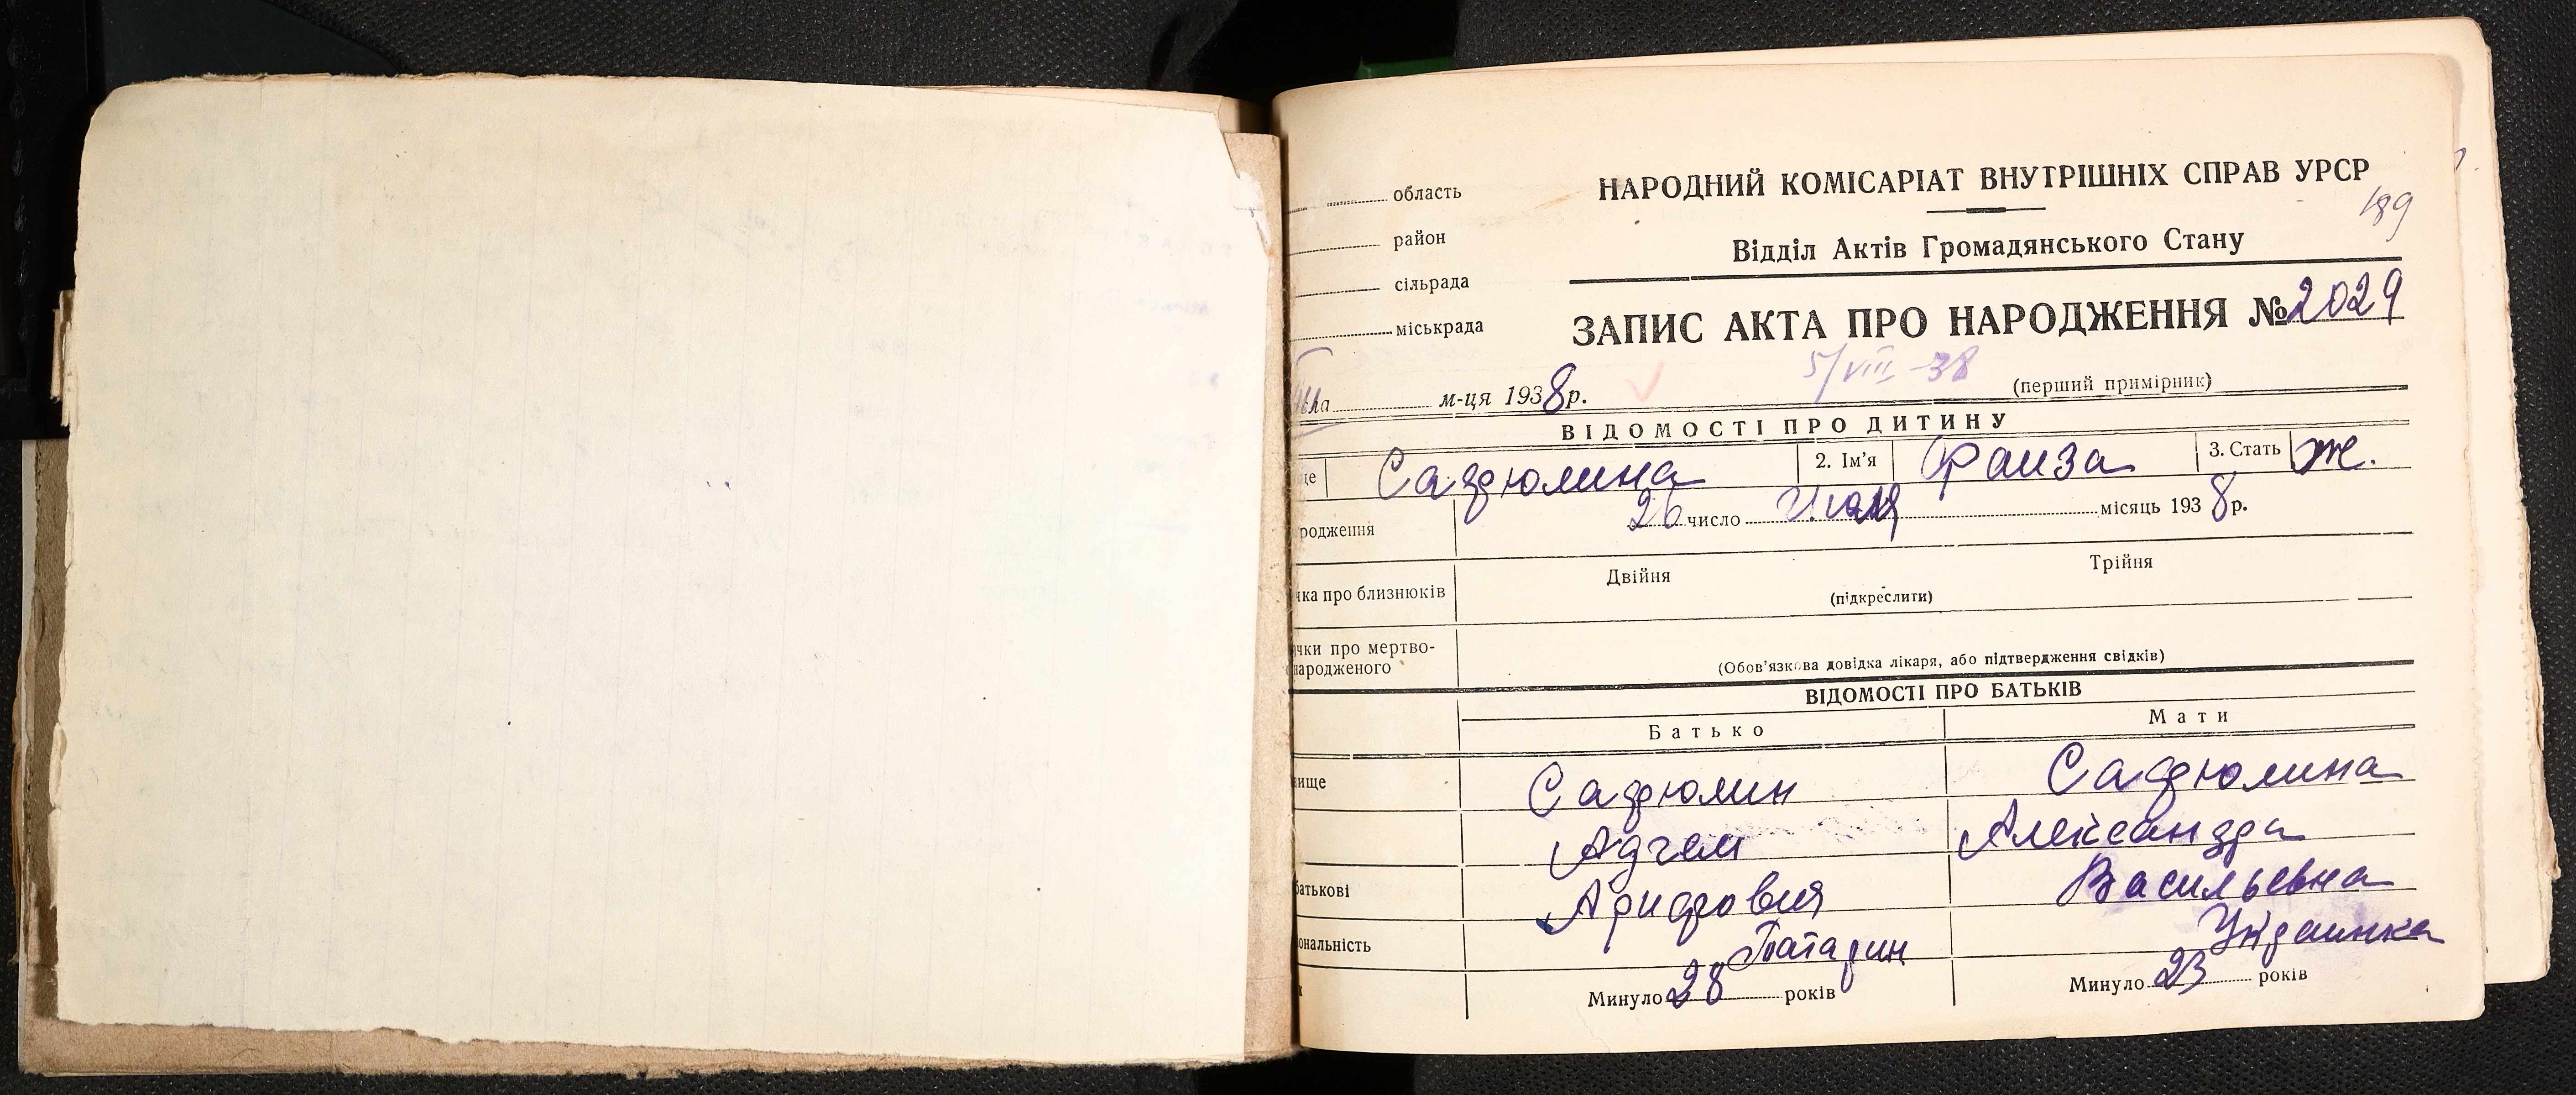 область
НАРОДНИЙ КОМІСАРІАТ ВНУТРІШНІХ СПРАВ УРСР
189
район
Відділ Актів Громадянського Стану
сільрада
ЗАПИС АКТА ПРО НАРОДЖЕННЯ № 2029
міськрада
5/VIII-38
(перший примірник)
м-ця 1938 р.
ВІДОМОСТІ ПРО ДИТИНУ
Садюлина 2. Ім'я Фаиза 3. Стать ж.
родження 26 число Июля місяць 1938 р.
чка про близнюків Двійня Трійня
(підкреслити)
чки про мертво-
народженого (Обов'язкова довідка лікаря, або підтвердження свідків)
ВІДОМОСТІ ПРО БАТЬКІВ
Батько Мати
вище Садюлин Садюлина
Александра
батькові Васильевна
ональність Татарин Украинка
Минуло 28 років Минуло 23 років